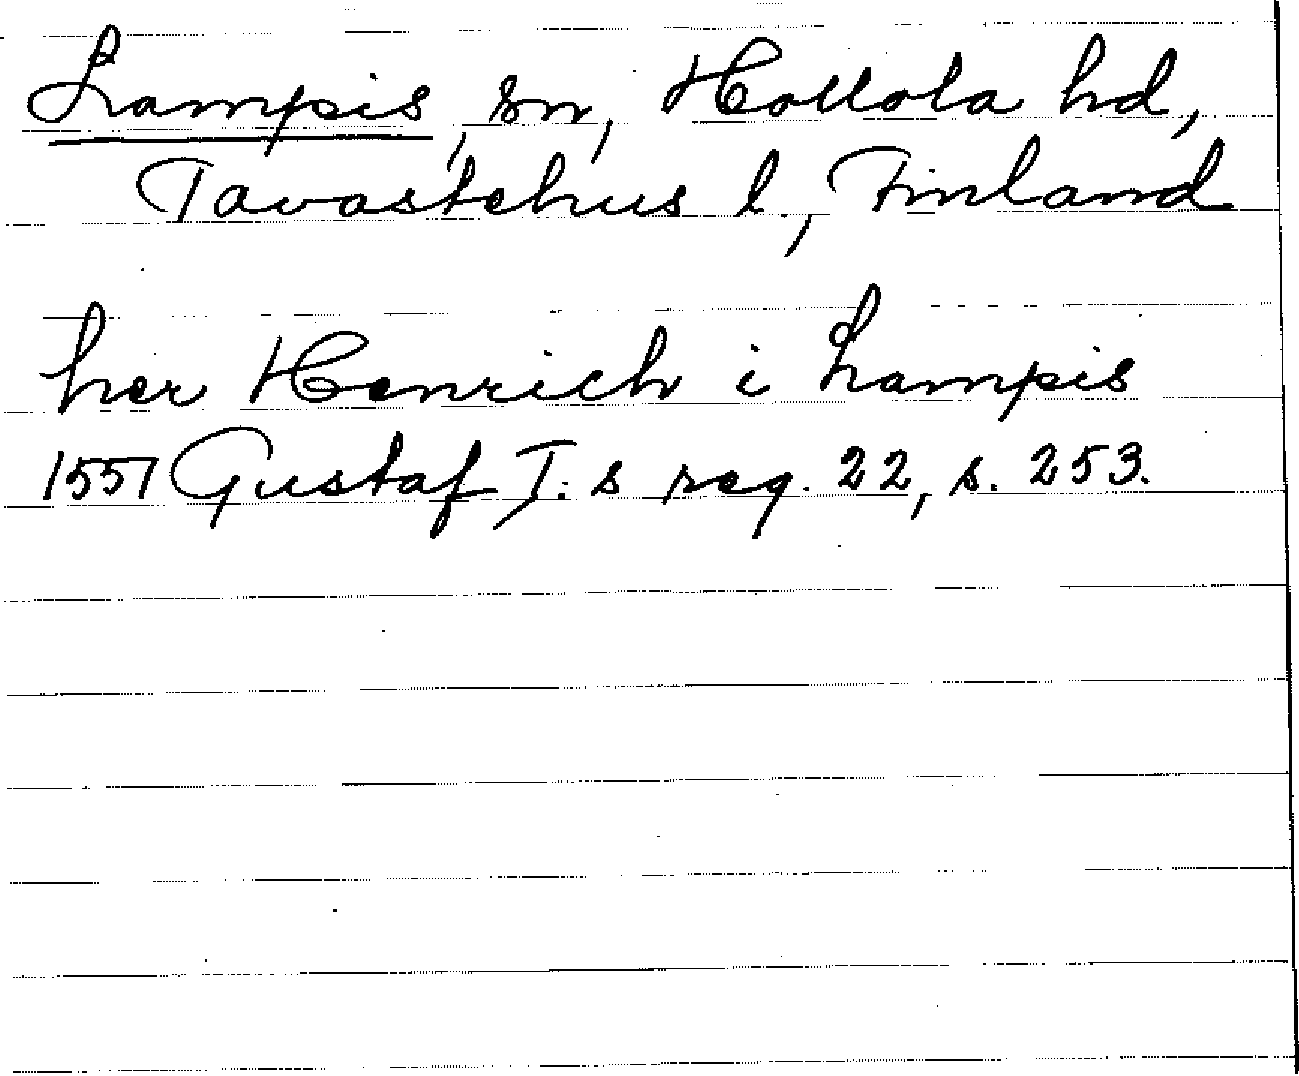 Lampis, sn, Hollola hd,
Tavastehus l., Finland
her Henrich i Lampis
1551 Gustaf I:s reg. 22, s. 253.